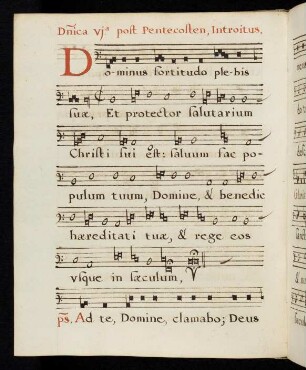 Dñica vjª post Pentecosten, Introitus.
Dominus fortitudo ple-bis
suæ, Et protector salutarium
Christi sui est: salvum fac po-
pulum tuum, Domine, & benedic
hæreditati tuæ, & rege eos
vsque in sæculum.
ps. Ad te, Domine, clamabo; Deus